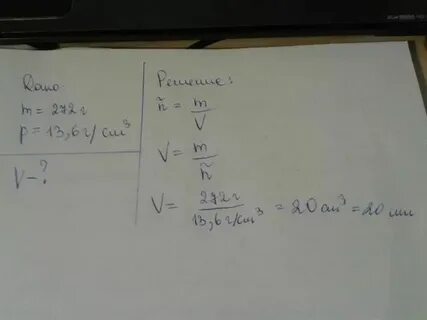 Дано
m = 272 г
p = 13,6 г/см³
V - ?
Решение:
ñ = m/V
V = m/ñ
V = 272 г/13,6 г/см³ = 20 см³ = 20 мл